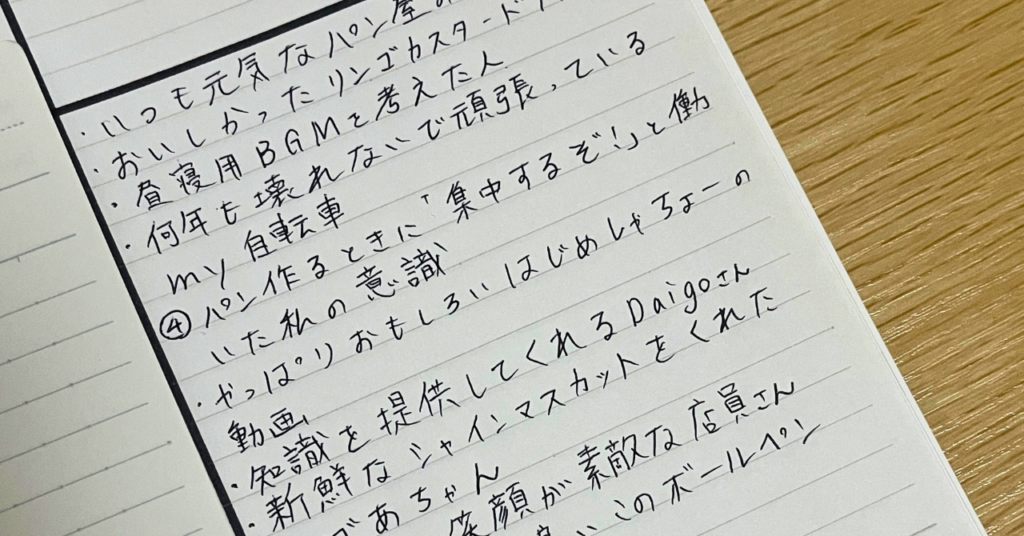 ・いつも元気なパン屋の
・おいしかったリンゴカスタード
・昼寝用BGMを考えた人
・何年も壊れないで頑張っている
my 自転車
④パン作るときに「集中するぞ!」と働
いた私の意識
・やっぱりおもしろいはじめしゃちょーの
動画
・知識を提供してくれるDaigoさん
・新鮮なシャインマスカットをくれた
ばあちゃん
笑顔が素敵な店員さん
いこのボールペン